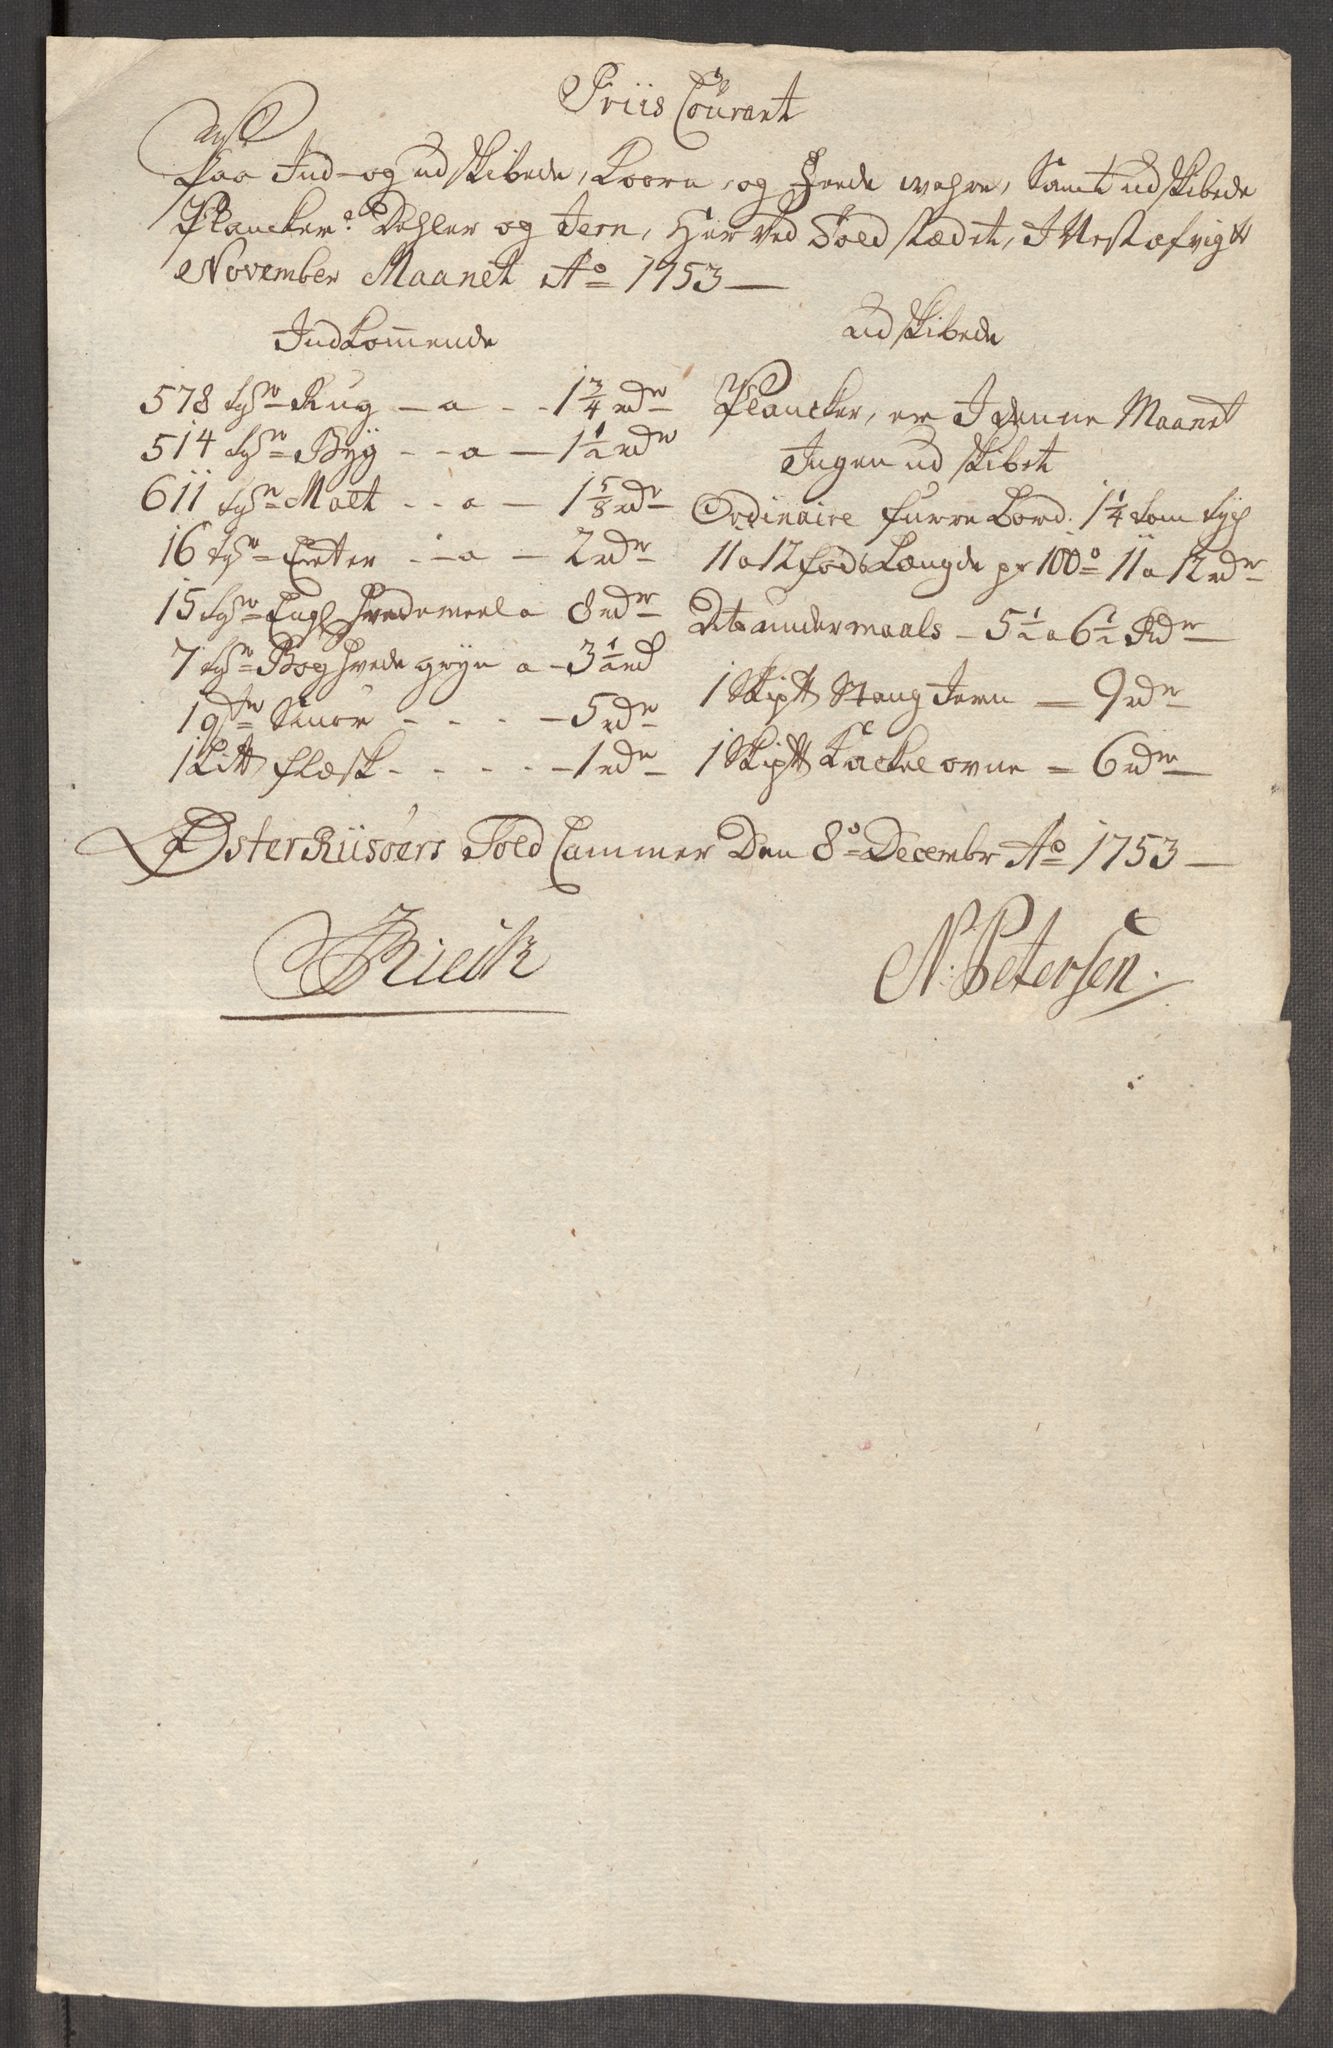 Priis Courant
Paa Ind- og udskibede, Koorn, og Fede wahre, Samt udskibede
Plancker, Dehler og Jern, Her Ved Told stædet, I Nest afvigte
November Maanet Ao 1753 —
Indkommende
578 Tdr Rug — a - - 1 3/4 rdr
514 Tdr Byg - - a — 1 1/2 rdr
611 Tdr Malt - - a — 1 5/8 rdr
16 Tdr Erter - - a — 2 rdr
15 Tdr Engl Hvedemeel a 8 rdr
7 Tdr Boghvede gryn a - 3 1/2 rd
1 Smør - - - - 5 rdr
1 L℔ flæsk - - - - - 1 rdr
udskibede
Plancker, er I denne Maanet
Ingen udskibet
Ordinaire furre Bord. 1 1/4 tom tyk
11 a 12 fods Længde pr 100o 11 a 12 rdr
Dito undermaals - 5 1/2 a 6 1/2 Rdr
1 Skip℔ Stang Jern — 9 rdr
1 Skip℔ Kackelovne = 6 rdr
Øster Riisøers Told Cammer Den 8o Decembr Ao 1753 —
N: Petersen.